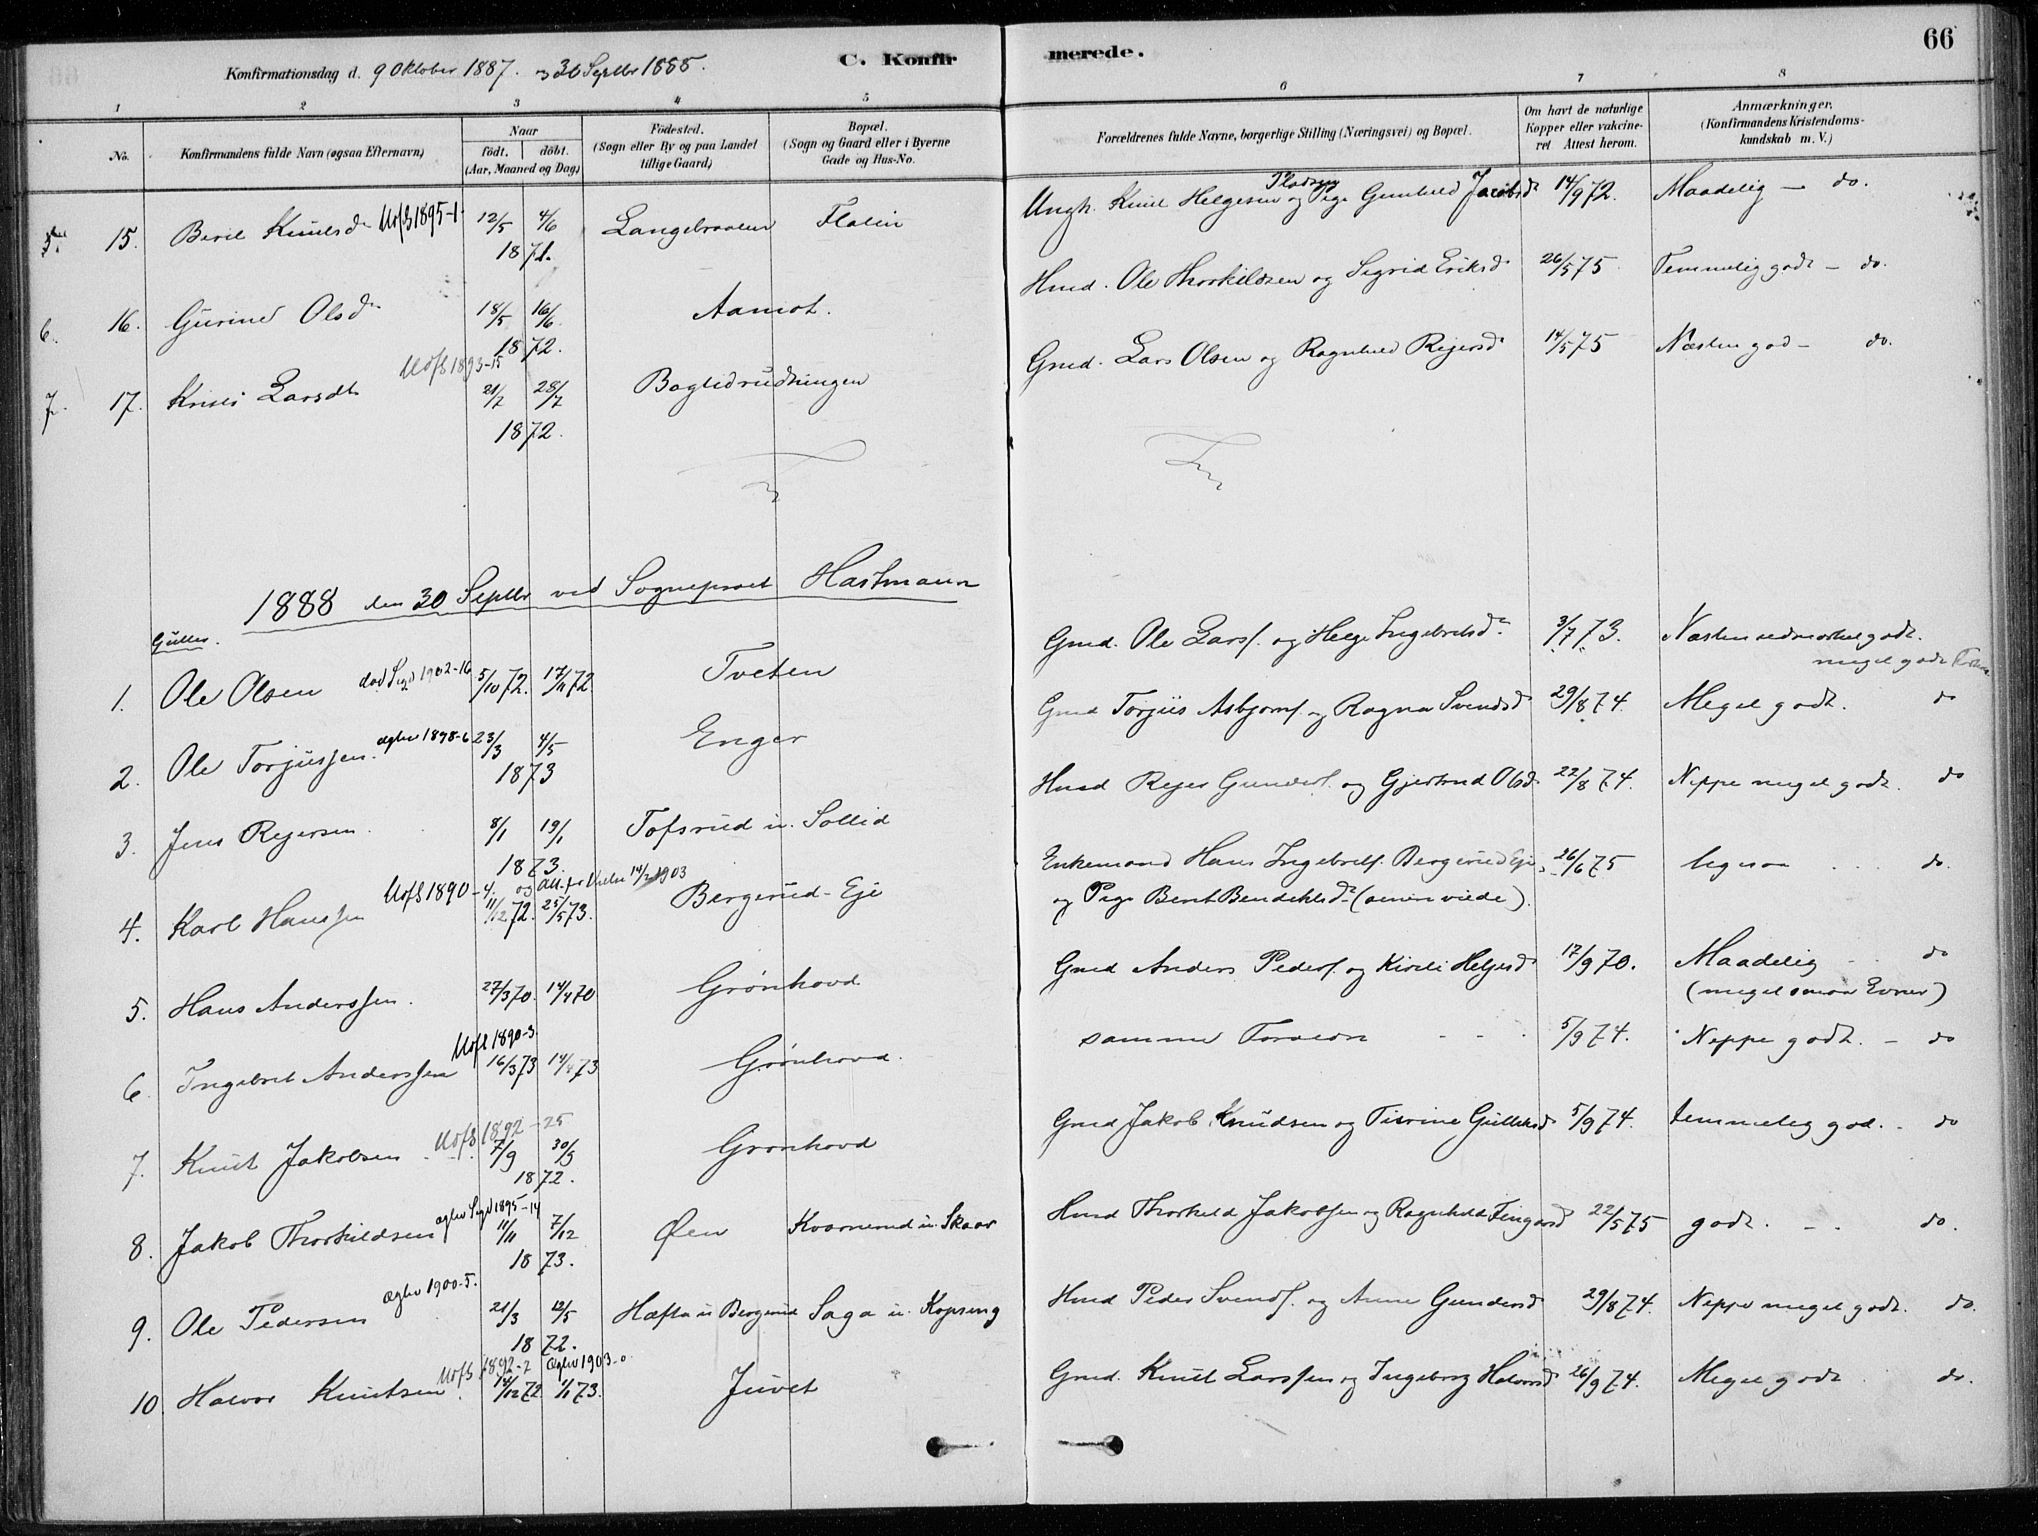 66
Konfirmationsdag d. 9 Oktober 1887. 30 Septbr 1888.
C. Konfirmerede.
1 2 3 4 5 6 7 8
No.
Konfirmandens fulde Navn (ogsaa Efternavn)
Naar
født. døbt.
(Aar, Maaned og Dag)
Fødested.
(Sogn eller By og paa Landet
tillige Gaard)
Bopæl.
(Sogn og Gaard eller i Byerne
Gade og Hus-No.
Forældrenes fulde Navne, borgerlige Stilling (Næringsvei) og Bopæl.
Om havt de naturlige
Kopper eller vakcine-
ret Attest herom.
Anmærkninger.
(Konfirmandens Kristendoms-
kundskab m. V.)
5. 15. Berit Knutsd. Udfl 1895-1. 12/5 4/6 1871. Langebraaten Flatin Ungk. Knut Helgesen og Pige Gunhild Jacobsd 14/9 72. Maadelig - do.
6. 16. Gurine Olsd. 18/5 16/6 1872. Aamot. Hmd. Ole Thorkildsen og Sigrid Eriksd 26/5 75 Temmelig godt - do.
Udfl 1893-15
7. 17. Kristi Larsdt 21/7 28/7 1872. Baglidrudningen Gmd. Lars Olsen og Ragnhild Reiersd 14/5 75 Næsten god - do.
1888 den 30 Septbr ved Sogneprest Hartmann
Gutter.
1. Ole Olsen død Sigd 1902-16 5/10 72. 17/11 72 Tveten Gmd. Ole Larss. og Helge Ingebretsd. 3/7 73. Næsten udmærket godt.
meget godt
2. Ole Torjussen. ægtev 1898-6 23/3 4/5 1873 Enger Gmd Torjus Asbjørns. og Ragna Svendsd 29/8 74. Meget godt. do
3. Jens Rejersen 8/1 19/1 1873. Tofsrud u. Sollid Hmd Rejer Gunders. og Gjertrud Olsd. 22/8 74. Neppe meget godt. do
Udfl 1890-4. og Att. for Vielse 14/2 1903
4. Karl Hanssen 11/12 72. 25/5 73. Bergerud-Eje Enkemand Hans Ingebrets. Bergerud Eje 26/6 75 ligesaa do.
og Pige Berit Bendiktsd. (
5. Hans Anderssen. 27/3 70. 14/4 70 Grønhovd Gmd Anders Peders. og Kirsti Helgesd 17/9 70. Maadelig do
(meget smaa Evner)
Udfl 1890-3.
6 Ingebret Anderssen 16/3 73 14/4 73 Grønhovd. samme Foræld 5/9 74. Neppe godt. - do
Udfl 1892-25
7. Knut Jakobsen 7/9 30/9 1872. Grønhovd Gmd Jakob Knudsen og Gulliksd 5/9 74. temmelig god. - do
8. Jakob Thorkildsen ægtev Sigd 1895-14 11/11 7/12 1873. Øen Kvarnerud u. Skaar Hmd Thorkild Jakobsen og Ragnhild Fingarsd 22/5 75 godt. - - do.
ægtev 1900-5.
9. Ole Pedersen 21/3 12/5 1872. Hæfta u Bergerud Saga u. Kopseng Hmd Peder Svends. og Anne Gundersd 29/8 74. Neppe meget godt. do.
Udfl 1892-2 Ægtev 1903-
10 Halvor Knutsen 14/12 72 1/1 73. Juvet Gmd. Knut Larssen og Ingeborg Halvorsd 26/9 74. Meget godt do.